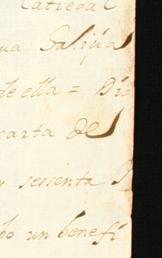 Catredal
ua Saliua
de ella = Di
carta de
sessenta
do un benefi